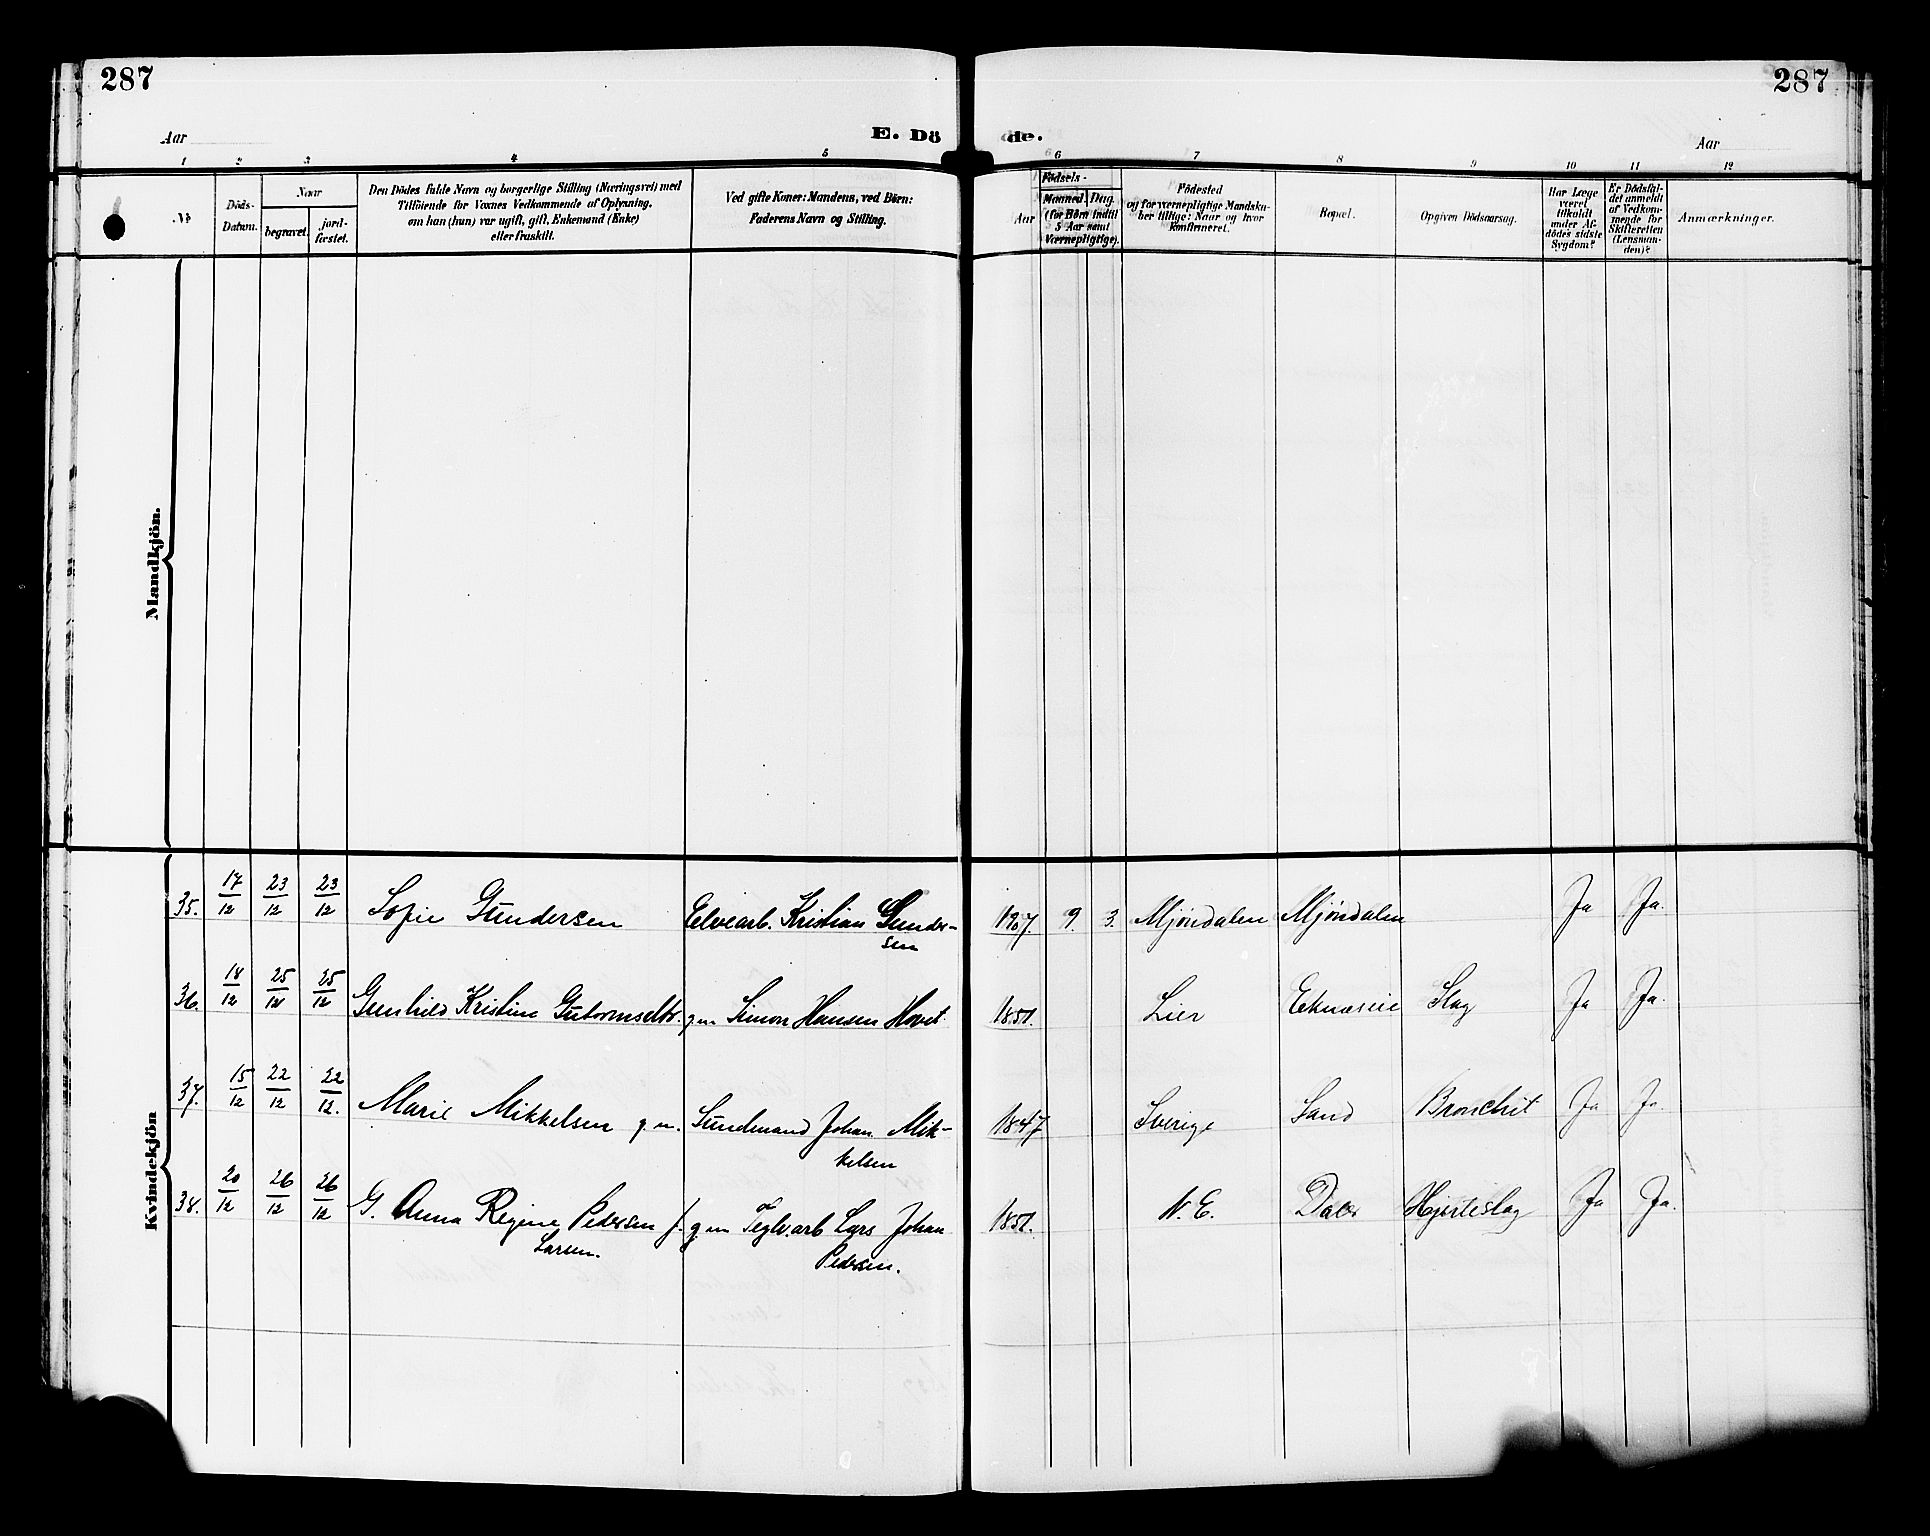 287
287
Aar
E. Dö
de.
Aar
1 2 3 4 5 6 7 8 9 10 11 12
№
Döds-
Datum.
Naar
begravet.
jord-
fæstet.
Den Dödes fulde Navn og borgerlige Stilling (Næringsvei) med
Tilföiende for Voxnes Vedkommende af Oplysning,
om han (hun) var ugift, gift, Enkemand (Enke)
eller fraskilt.
Ved gifte Koner: Mandens, ved Börn:
Faderens Navn og Stilling.
Födsels-
Aar
Maaned. Dag.
(for Börn indtil
5 Aar samt
Værnepligtige).
Födested
og for værnepligtige Mandska-
ber tillige: Naar og hvor
konfirmeret.
Bopæl.
Opgiven Dödsaarsag.
Har Læge
været
tilkaldt
under Af-
dödes sidste
Sygdom?
Er Dödsfal-
det anmeldt
af Vedkom-
mende for
Skifteretten
(Lensman-
den)?
Anmærkninger.
Mandkjön.
Kvindekjön
35. 17/12 23/12 23/12 Sofie Gundersen Elvearb. Kristian Gunder-
sen
1907. 9. 3. Mjöndalen Mjöndalen Ja Ja.
36. 18/12 25/12 25/12 Gunhild Kristine Gutormsdtr. g. m. Simon Hansen Hovet.
1851. Lier Eknæseie Slag Ja Ja.
37. 15/12 22/12 22/12. Marie Mikkelsen g. m. Sundmand Johan Mik-
kelsen
1847 Sverige Sand Bronchit Ja Ja.
38. 20/12 26/12 26/12 G. Anna Regine Pedersen f. g. m Teglv.arb Lars Johan
Larsen. Pedersen.
1851. N. E. Daler Hjerteslag Ja Ja.